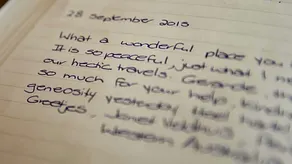 28 September 2013
What a wonderful place you
It is so peaceful, just what I
our hectic travels.
so much for your help, kind
generosity yesterday
Greetjes, Janet
Western Australia